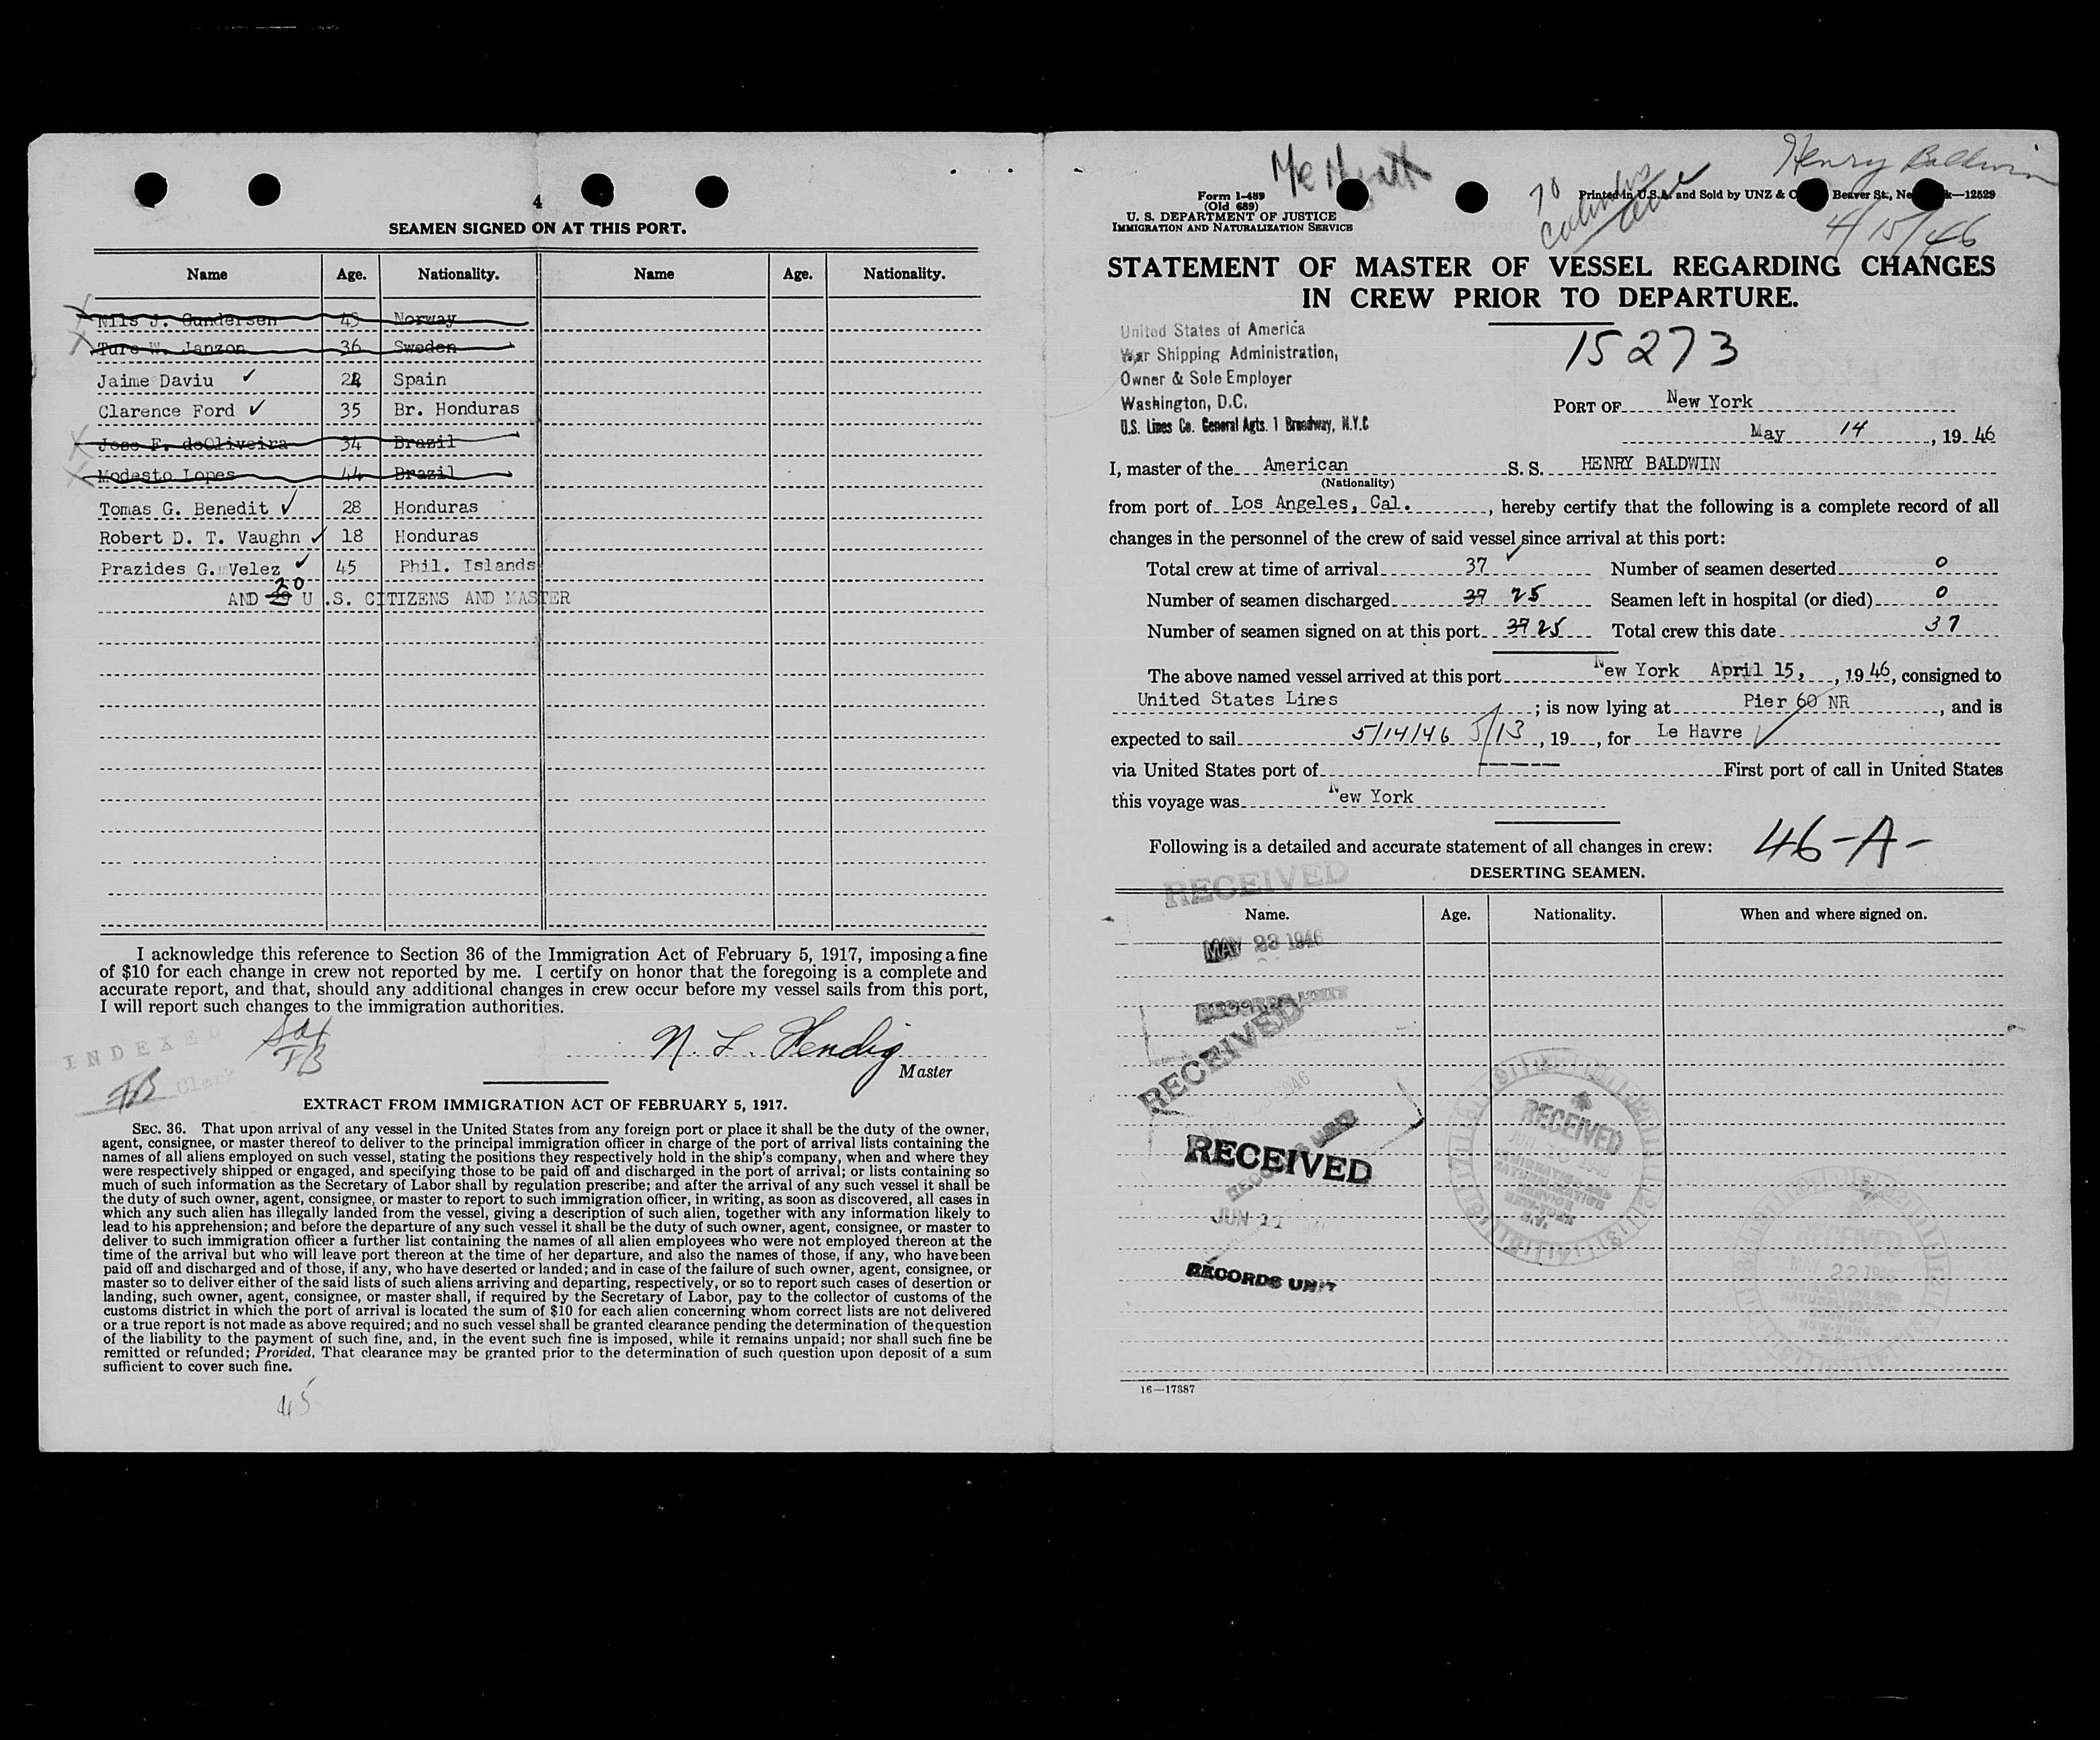 4
SEAMEN SIGNED ON AT THIS PORT.
Name Age. Nationality. Name Age. Nationality.
Nils J. Gundersen 43 Norway
Ture W. Janzon 36 Sweden
Jaime Daviu ✓ 22 Spain
Clarence Ford ✓ 35 Br. Honduras
Jose F. deOliveira 34 Brazil
Modesto Lopes 44 Brazil
Tomas G. Benedit ✓ 28 Honduras
Robert D. T. Vaughn ✓ 18 Honduras
Prazides G. Velez ✓ 45 Phil. Islands
20
AND 29 U.S. CITIZENS AND MASTER
I acknowledge this reference to Section 36 of the Immigration Act of February 5, 1917, imposing a fine
of $10 for each change in crew not reported by me. I certify on honor that the foregoing is a complete and
accurate report, and that, should any additional changes in crew occur before my vessel sails from this port,
I will report such changes to the immigration authorities.
INDEXED
TB
TB Clerk
N. L. Hendig
Master
EXTRACT FROM IMMIGRATION ACT OF FEBRUARY 5, 1917.
SEC. 36. That upon arrival of any vessel in the United States from any foreign port or place it shall be the duty of the owner,
agent, consignee, or master thereof to deliver to the principal immigration officer in charge of the port of arrival lists containing the
names of all aliens employed on such vessel, stating the positions they respectively hold in the ship's company, when and where they
were respectively shipped or engaged, and specifying those to be paid off and discharged in the port of arrival; or lists containing so
much of such information as the Secretary of Labor shall by regulation prescribe; and after the arrival of any such vessel it shall be
the duty of such owner, agent, consignee, or master to report to such immigration officer, in writing, as soon as discovered, all cases in
which any such alien has illegally landed from the vessel, giving a description of such alien, together with any information likely to
lead to his apprehension; and before the departure of any such vessel it shall be the duty of such owner, agent, consignee, or master to
deliver to such immigration officer a further list containing the names of all alien employees who were not employed thereon at the
time of the arrival but who will leave port thereon at the time of her departure, and also the names of those, if any, who have been
paid off and discharged and of those, if any, who have deserted or landed; and in case of the failure of such owner, agent, consignee, or
master so to deliver either of the said lists of such aliens arriving and departing, respectively, or so to report such cases of desertion or
landing, such owner, agent, consignee, or master shall, if required by the Secretary of Labor, pay to the collector of customs of the
customs district in which the port of arrival is located the sum of $10 for each alien concerning whom correct lists are not delivered
or a true report is not made as above required; and no such vessel shall be granted clearance pending the determination of the question
of the liability to the payment of such fine, and, in the event such fine is imposed, while it remains unpaid; nor shall such fine be
remitted or refunded; Provided, That clearance may be granted prior to the determination of such question upon deposit of a sum
sufficient to cover such fine.
45
Henry Baldwin
4/15/46
Form I-489
(Old 689)
U. S. DEPARTMENT OF JUSTICE
IMMIGRATION AND NATURALIZATION SERVICE
Printed in U.S.A. and Sold by UNZ & C Beaver St., Ne k—12529
STATEMENT OF MASTER OF VESSEL REGARDING CHANGES
IN CREW PRIOR TO DEPARTURE.
United States of America
War Shipping Administration,
Owner & Sole Employer
Washington, D.C.
U.S. Lines Co. General Agts. 1 Broadway, N.Y.C
15273
PORT OF New York
May 14, 1946
I, master of the American S. S. HENRY BALDWIN
(Nationality)
from port of Los Angeles, Cal., hereby certify that the following is a complete record of all
changes in the personnel of the crew of said vessel since arrival at this port:
Total crew at time of arrival 37 Number of seamen deserted 0
Number of seamen discharged 37 25 Seamen left in hospital (or died) 0
Number of seamen signed on at this port 37 25 Total crew this date 37
The above named vessel arrived at this port New York April 15, , 1946, consigned to
United States Lines ; is now lying at Pier 60 NR, and is
expected to sail 5/14/46 5/13, 19 , for Le Havre
via United States port of First port of call in United States
this voyage was New York
Following is a detailed and accurate statement of all changes in crew: 46-A-
DESERTING SEAMEN.
Name. Age. Nationality. When and where signed on.
RECEIVED
MAY 23 1946
RECORDS UNIT
RECEIVED
1946
RECORDS UNIT
RECEIVED
JUN 11
RECORDS UNIT
RECEIVED
JUN 10 1946
IMMIGRATION AND
NATURALIZATION
SERVICE
NEW YORK
N.Y.
RECEIVED
MAY 22 1946
IMMIGRATION AND
NATURALIZATION
SERVICE
NEW YORK
16—17887